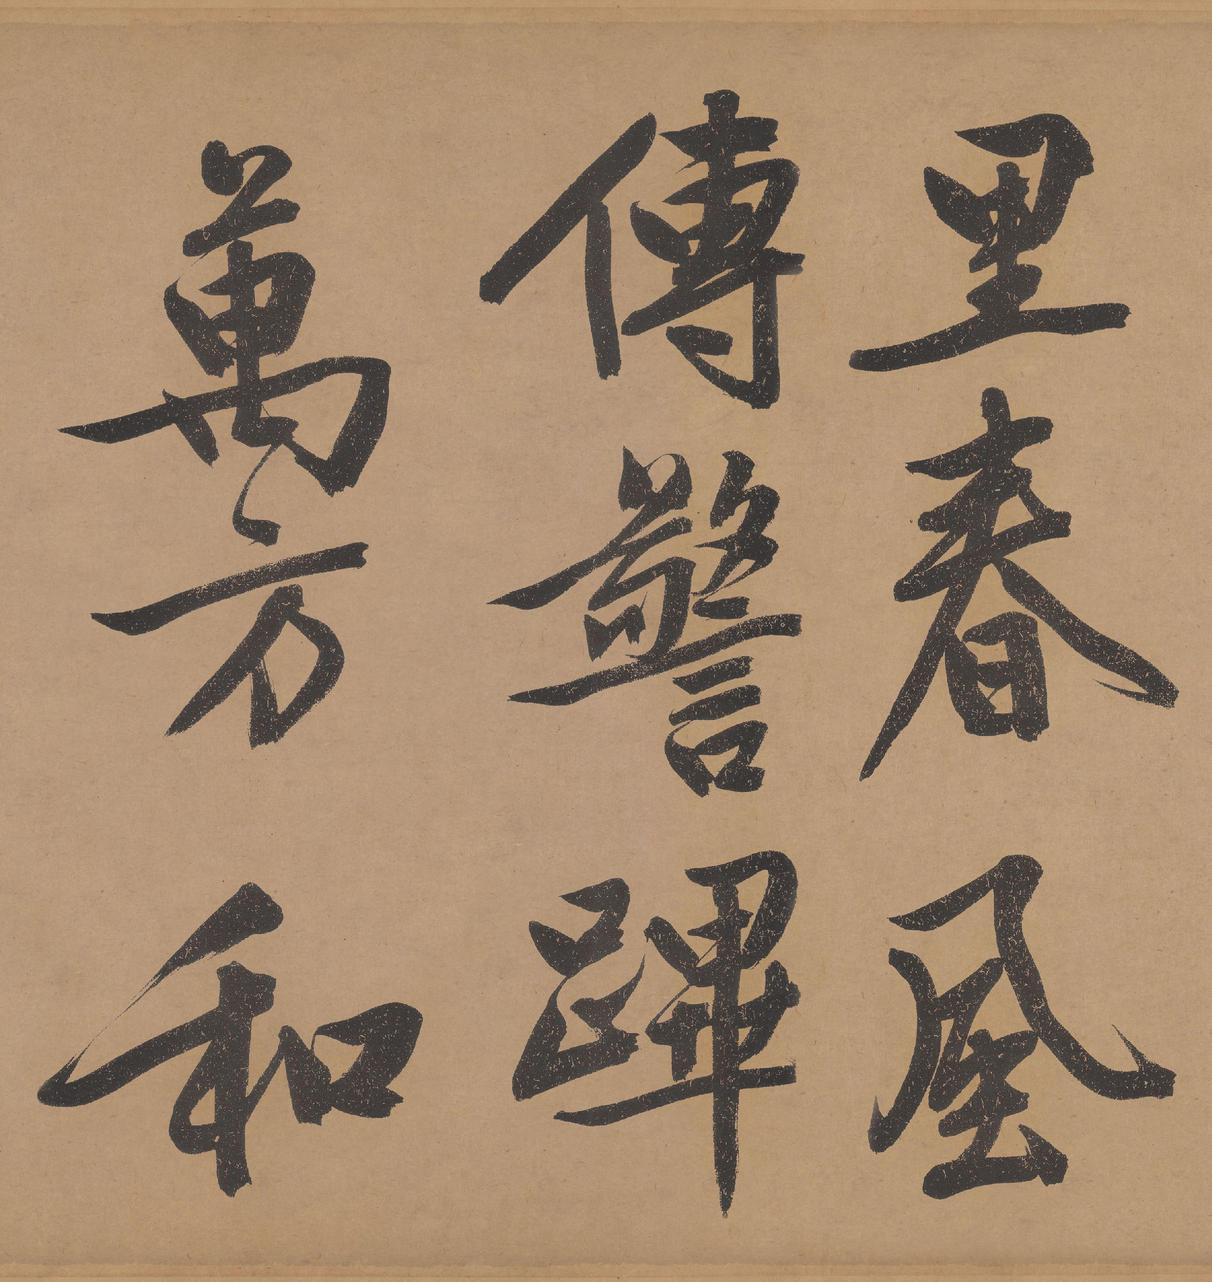 里春風
傳警蹕
萬方和